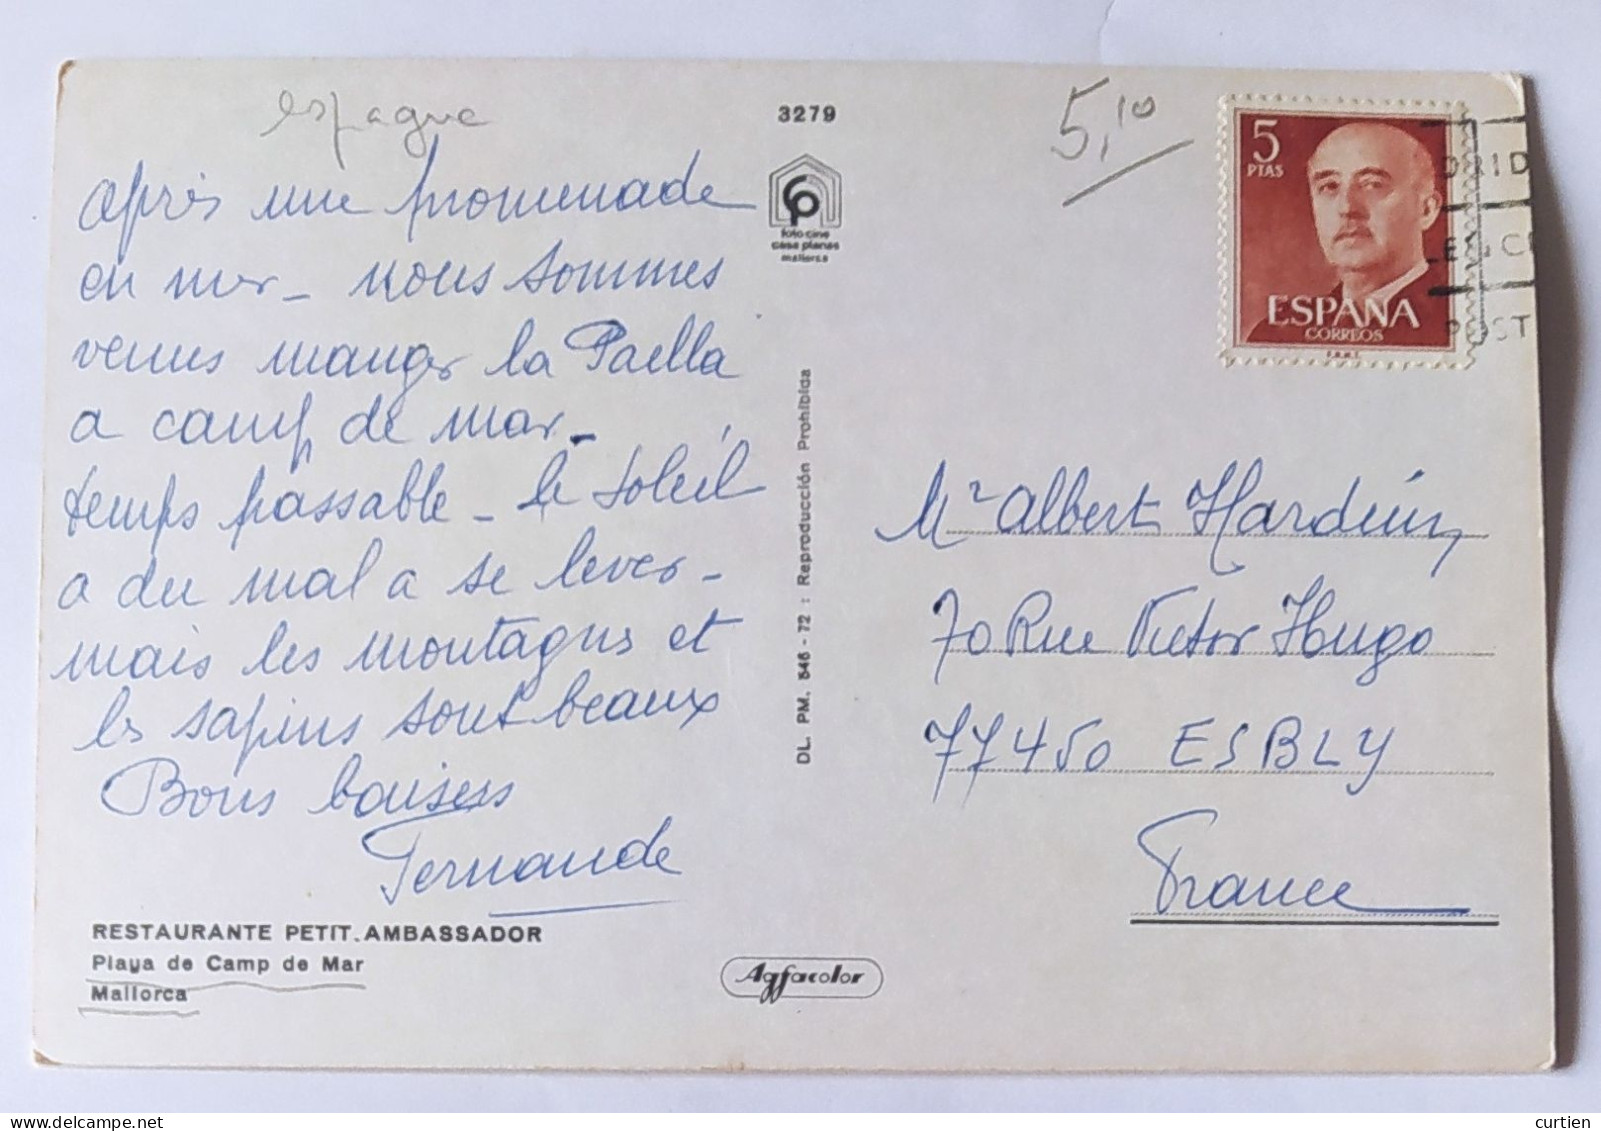 espagne
3279
5,10
Après une promenade
en mer - nous sommes
venus manger la Paella
a camp de mar -
temps passable - le soleil
a du mal a se lever -
mais les montagnes et
les sapins sont beaux
Bons baisers
Fernande
RESTAURANTE PETIT. AMBASSADOR
Playa de Camp de Mar
Mallorca
cp
foto cine
casa planas
mallorca
DL. PM. 546 - 72 : Reproducción Prohibida
Agfacolor
5
PTAS
ESPAÑA
CORREOS
F.N.M.T.
DRID
POST
Mr Albert Harduin
70 Rue Victor Hugo
77450 ESBLY
France
curtien